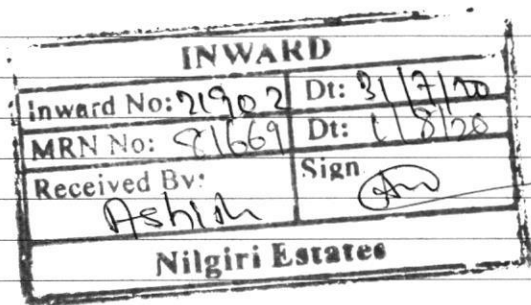 INWARD
Inward No: 21902 Dt: 31/7/20
MRN No: 81669 Dt: 1/8/20
Received By: Sign
Ashish
Nilgiri Estates